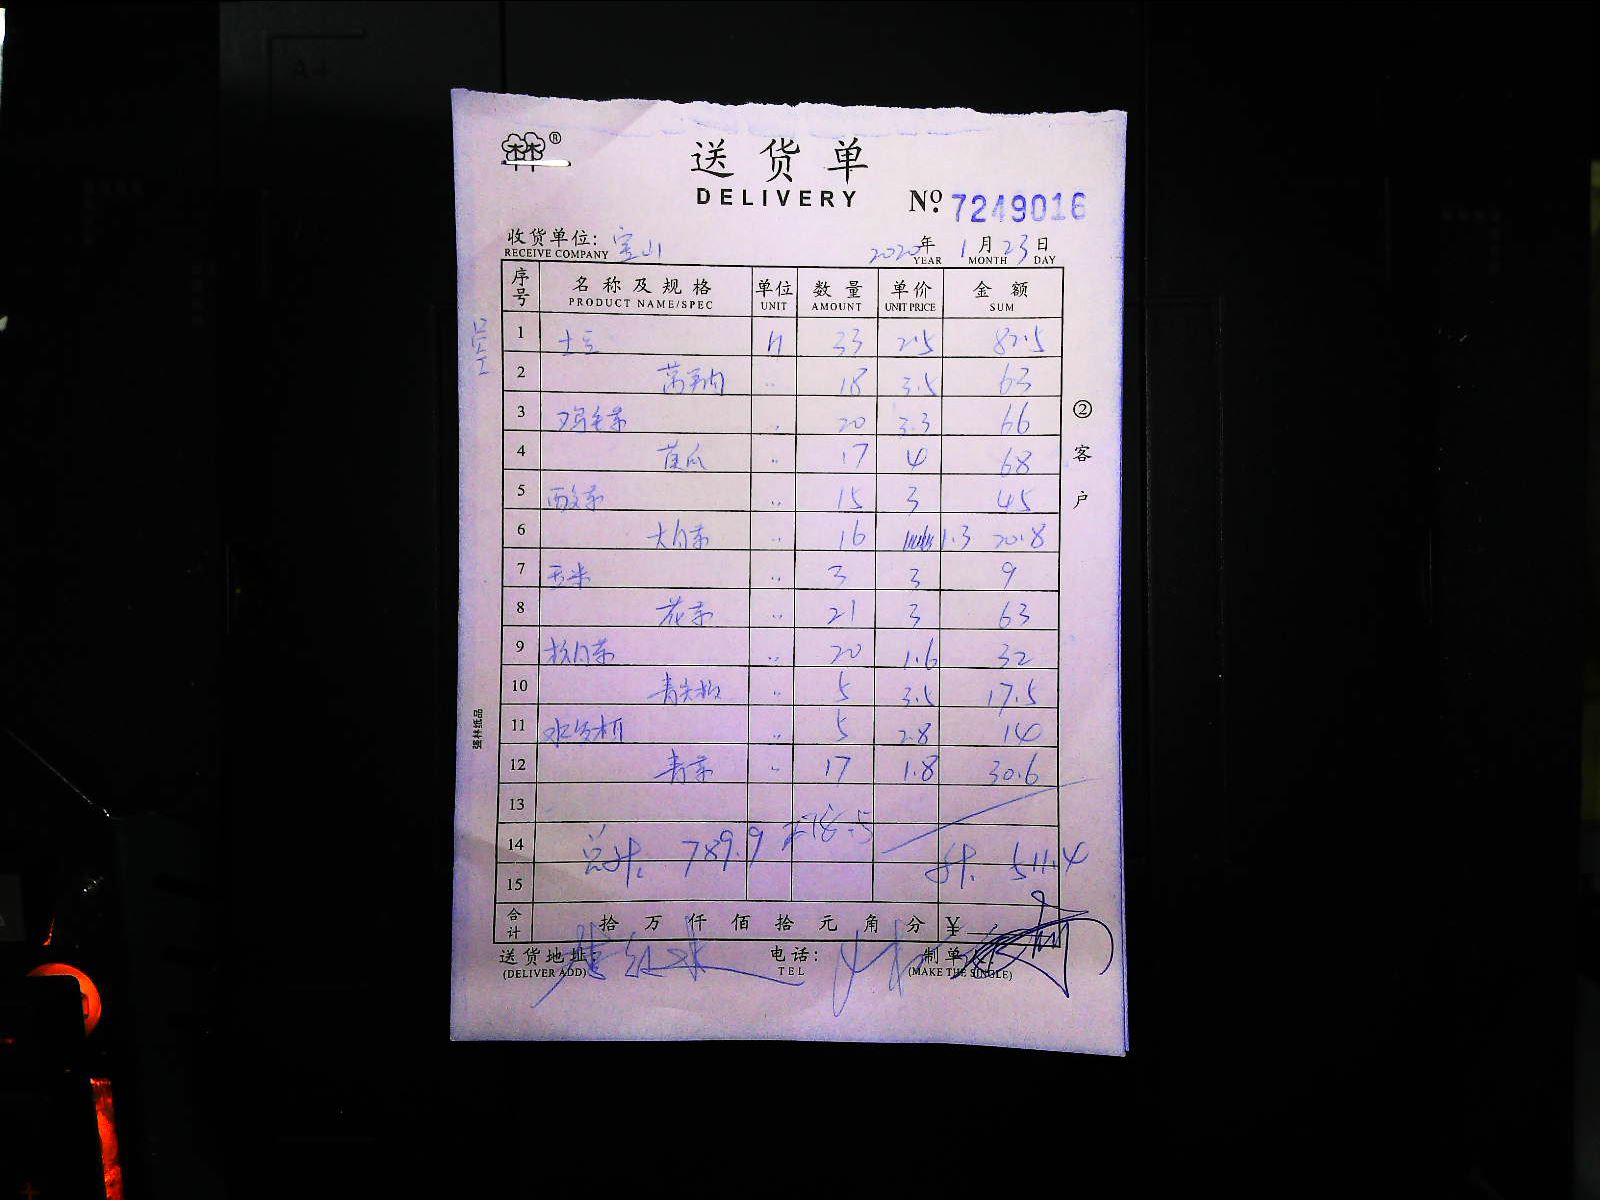 送货单
DELIVERY
No. 7249016
收货单位: 宝山 2020年 1月23日
RECEIVE COMPANY YEAR MONTH DAY
序号 名称及规格 单位 数量 单价 金额
PRODUCT NAME/SPEC UNIT AMOUNT UNIT PRICE SUM
1 土豆 斤 33 2.5 82.5
2 莴笋肉 〃 18 3.5 63
3 鸡毛菜 〃 20 3.3 66
4 黄瓜 〃 17 4 68
5 酸菜 〃 15 3 45
6 大白菜 〃 16 1.3 20.8
7 玉米 〃 3 3 9
8 花菜 〃 21 3 63
9 杭白菜 〃 20 1.6 32
10 青尖椒 〃 5 3.5 17.5
11 〃 5 2.8 14
12 青菜 〃 17 1.8 30.6
13
14 总计: 789.9 278.5 计: 511.4
15
合计 拾 万 仟 佰 拾 元 角 分 ¥
送货地址: 电话: 制单人:
(DELIVER ADD) TEL (MAKE THE SINGLE)
②客户
强林纸品
A4